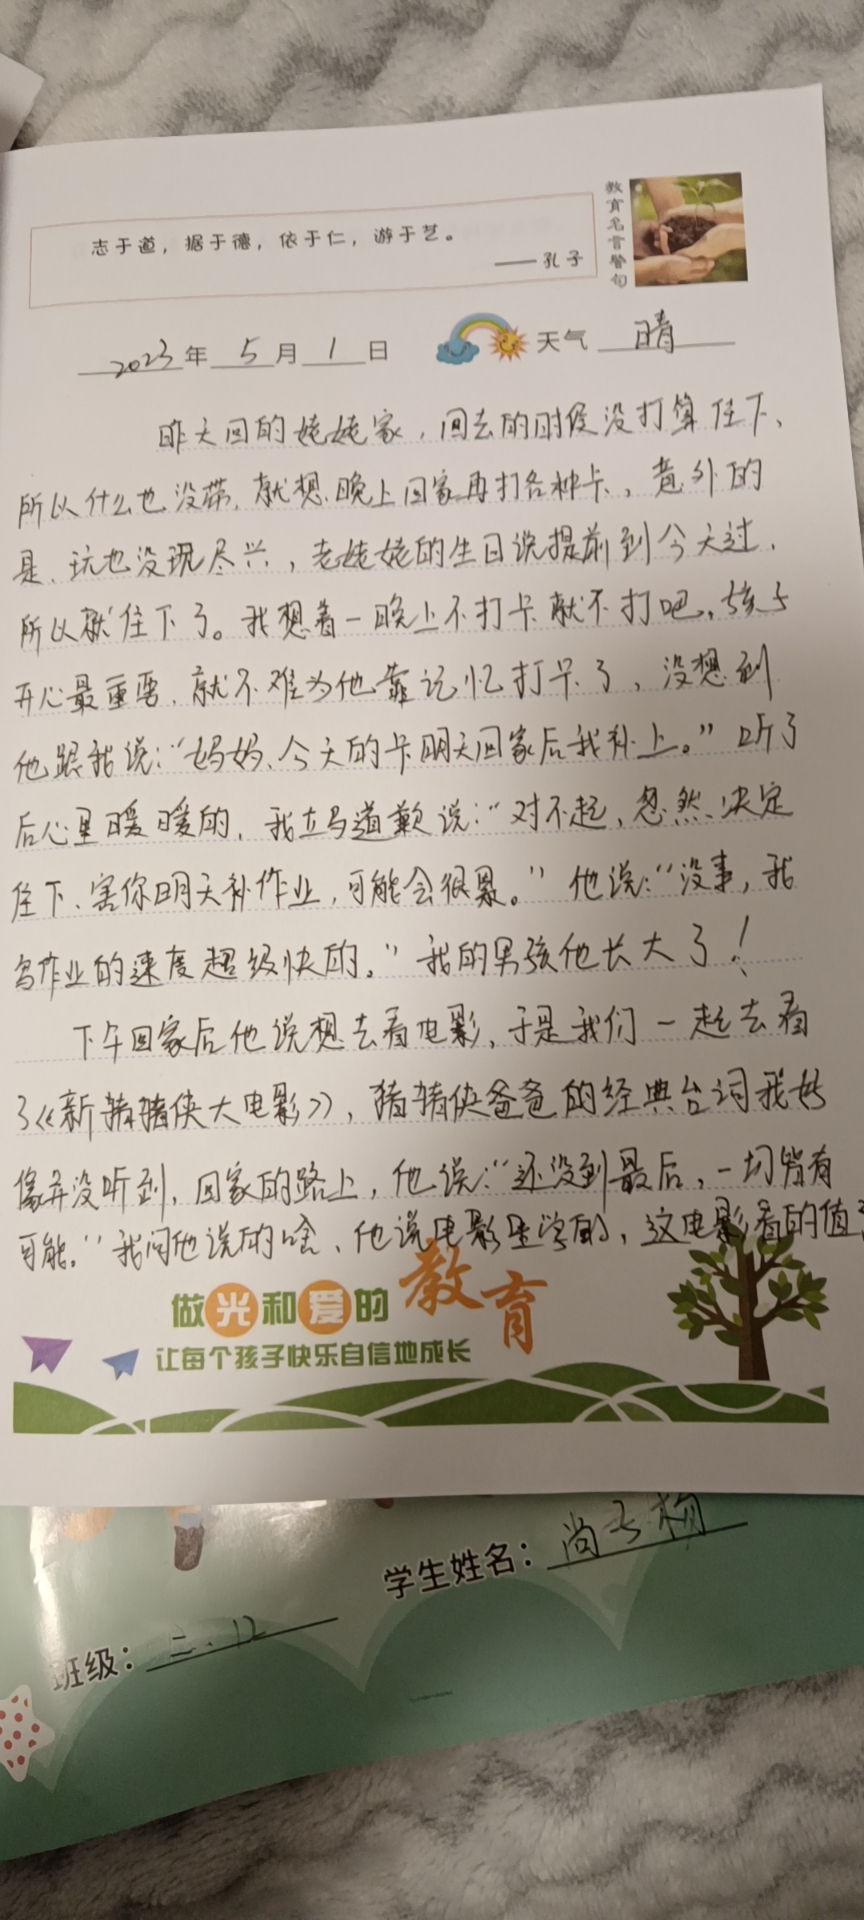 志于道，据于德，依于仁，游于艺。
——孔子
教育名言警句
2023年5月1日 天气 晴
昨天回的姥姥家，回去的时候没打算住下、
所以什么也没带，就想晚上回家再打各种卡，意外的
是、玩也没玩尽兴，老姥姥的生日说提前到今天过，
所以就住下了。我想着一晚上不打卡就不打吧，孩子
开心最重要，就不难为他靠记忆打卡了，没想到
他跟我说：“妈妈、今天的卡明天回家后我补上。”听了
后心里暖暖的，我立马道歉说：“对不起，忽然决定
住下、害你明天补作业，可能会很累。”他说：“没事，我
写作业的速度超级快的。”我的男孩他长大了！
下午回家后他说想去看电影，于是我们一起去看
了《新猪猪侠大电影》，猪猪侠爸爸的经典台词我好
像并没听到，回家的路上，他说：“还没到最后，一切皆有
可能。”我问他说的啥、他说电影里学的，这电影看的值了
做光和爱的教育
让每个孩子快乐自信地成长
学生姓名：尚
班级：二.12